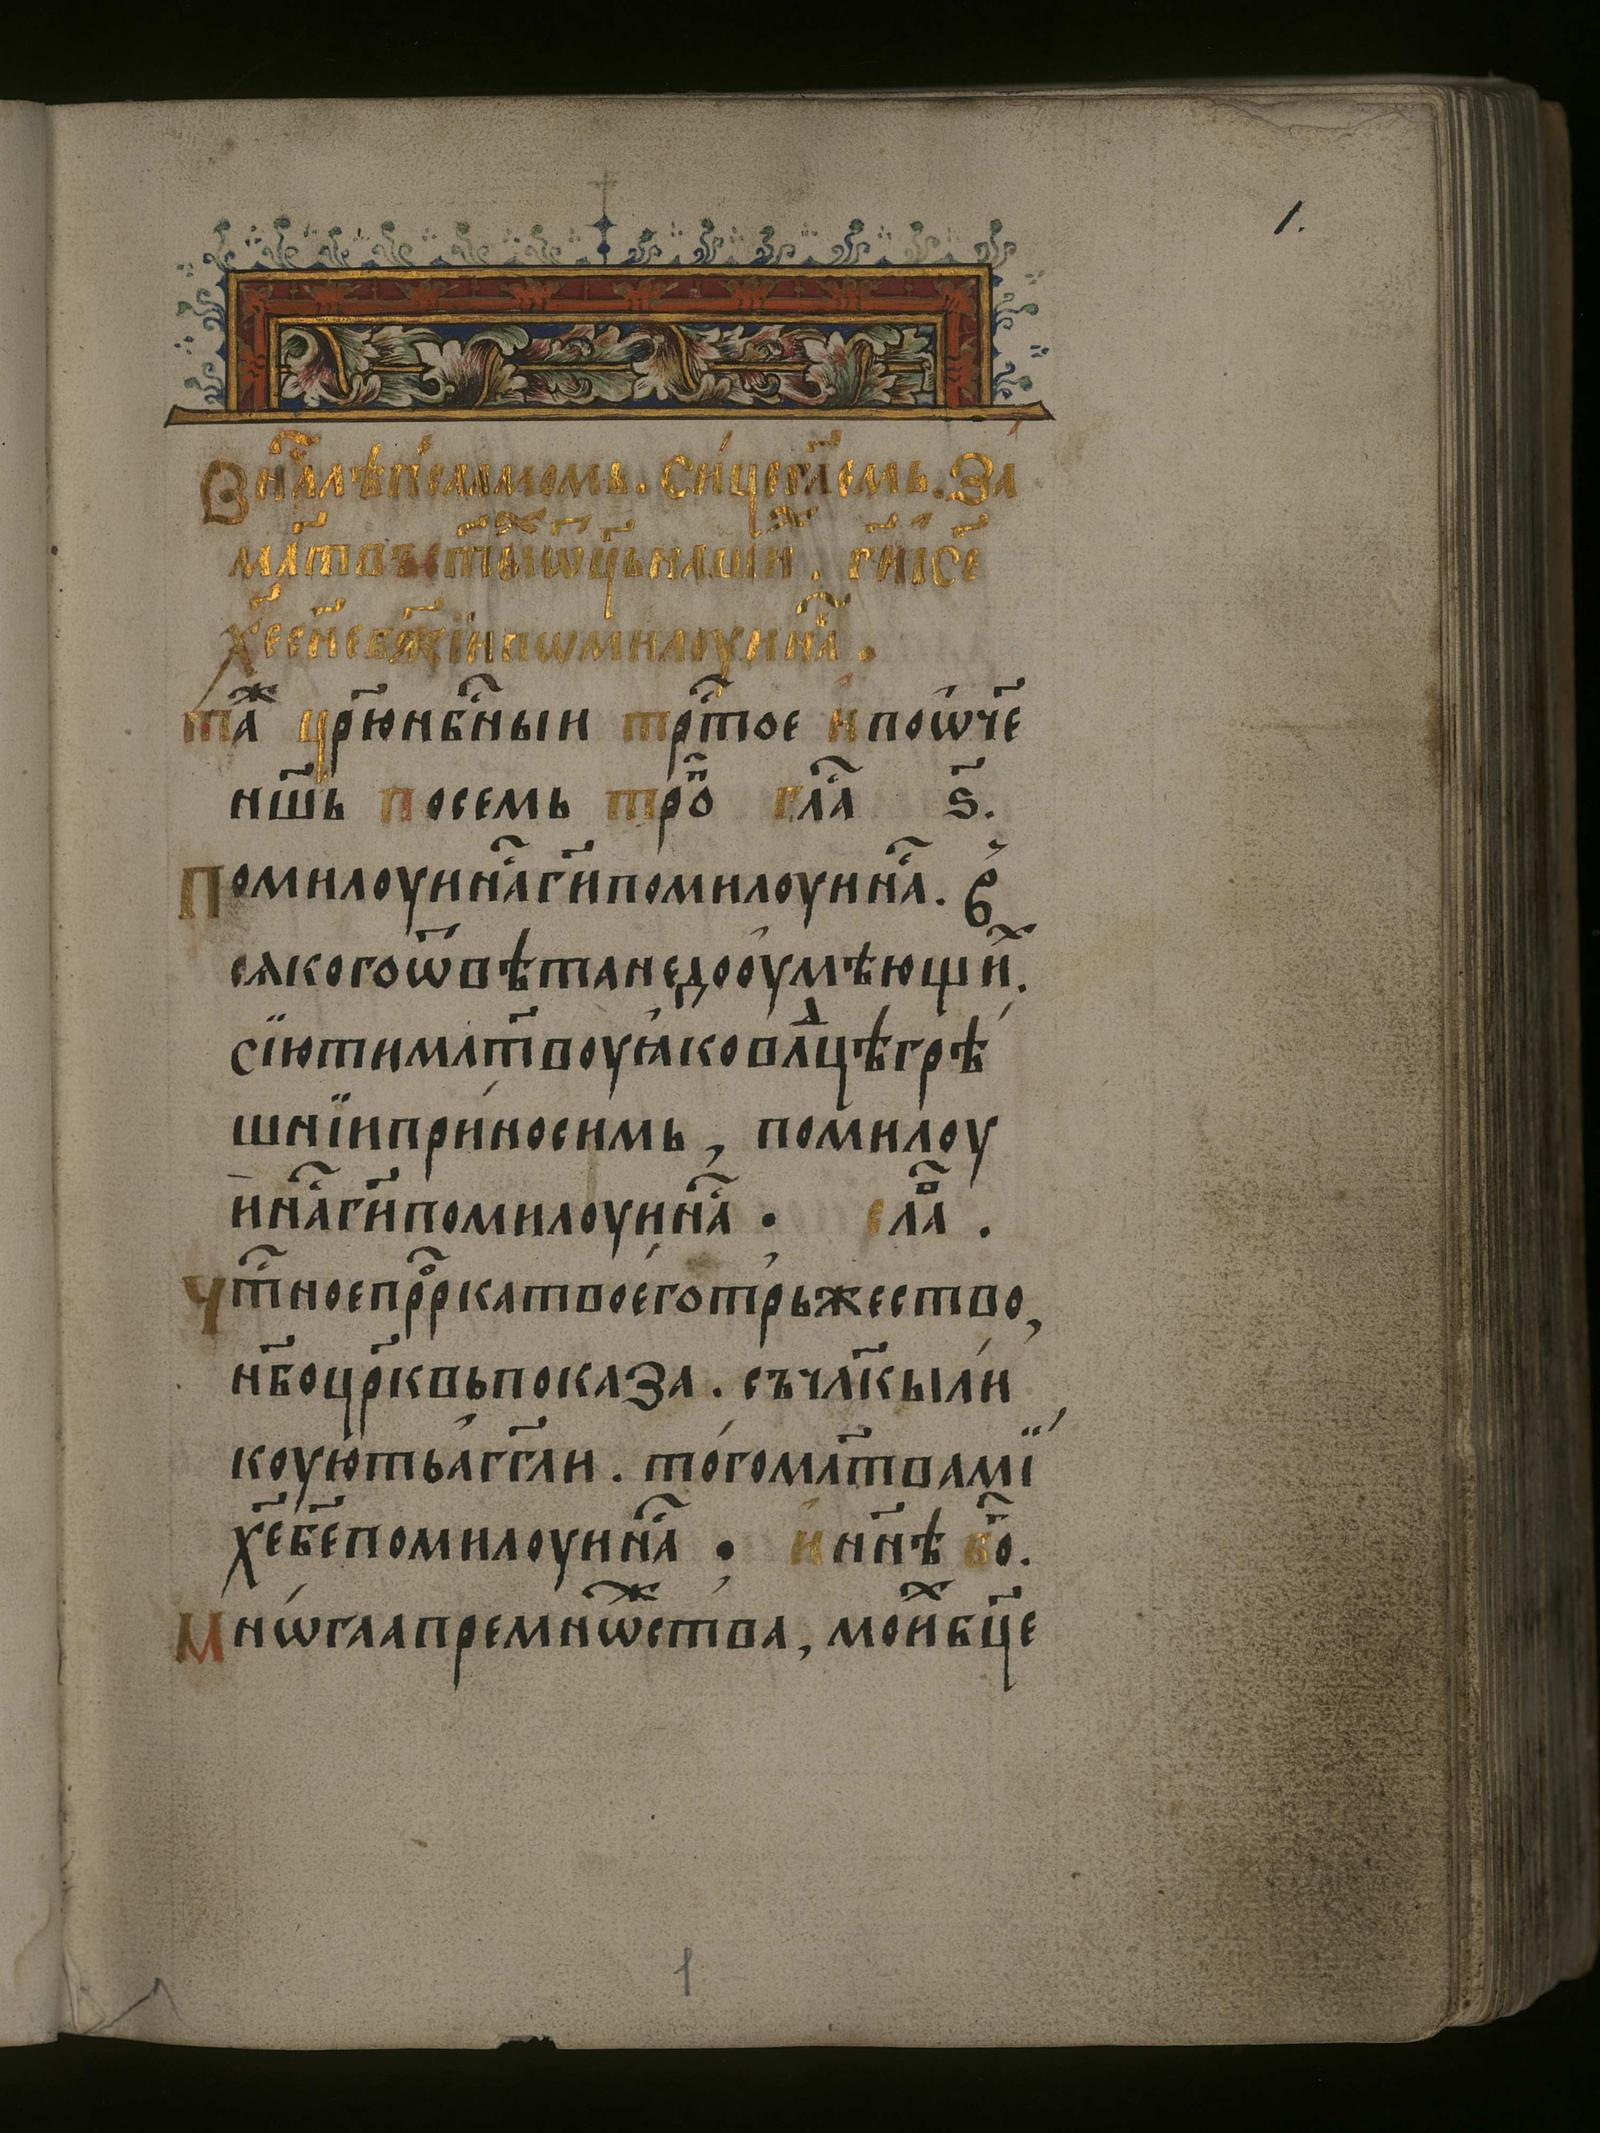 1.
В на́ⷱ҇лѣ пⷭ҇алмомь. Си́це гл҃емь. За
мл҃твъ ст҃ыⷯ ѡ҃ць нашиⷯ. гй҃ іс҃е
хе҃ сн҃е бж҃їи пѡмилоуи на́ⷭ҇.
таⷤ цр҃ю нбⷭ҇ныи трⷭ҇тое и по ѡ҃че
нш҃ь по семь троⷫ҇ гла́ⷭ҇ ѕ҃.
Помилоуи на́ⷭ҇ ги҃ помилоуи на́ⷭ҇. б
сякого ѿвѣта недооумѣющиⷯ.
сїю ти мл҃твоу ꙗко влⷣцѣ грѣ
шнїи при́носимь, помилоу
и на́ⷭ҇ ги҃ помилоуи на́ⷭ҇ • слаⷡ҇.
Чт҃ное прⷪ҇рка твоего трьжество,
нб҃о цр҃квь показа. съ чл҃кы ли
коую́ть а́гг҃ли. того мл҃твамї
хе҃ бе҃ помилоуи на́ⷭ҇ • и нн҃ѣ воⷢ҇.
Мнѡ́гаа премнѡⷤства, моиⷯ бц҃е
1